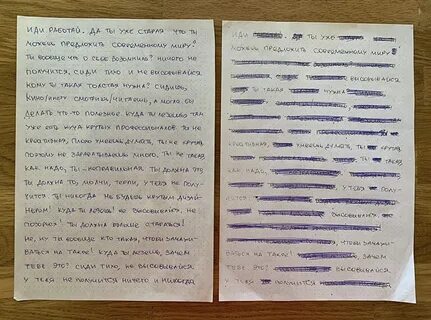 ИДИ РАБОТАЙ. ДА ТЫ УЖЕ СТАРАЯ ЧТО ТЫ
МОЖЕШЬ ПРЕДЛОЖИТЬ СОВРЕМЕННОМУ МИРУ?
ТЫ ВООБЩЕ ЧТО О СЕБЕ ВОЗОМНИЛА? НИЧЕГО НЕ
ПОЛУЧИТСЯ, СИДИ ТИХО И НЕ ВЫСОВЫВАЙСЯ.
КОМУ ТЫ ТАКАЯ ТОЛСТАЯ НУЖНА? СИДИШЬ,
КИНО/КНИГУ СМОТРИШЬ/ЧИТАЕШЬ, А МОГЛА БЫ
ДЕЛАТЬ ЧТО-ТО ПОЛЕЗНОЕ. КУДА ТЫ ЛЕЗЕШЬ, ТАМ
УЖЕ ЕСТЬ КУЧА КРУТЫХ ПРОФЕССИОНАЛОВ. ТЫ НЕ
КРЕАТИВНАЯ, ПЛОХО УМЕЕШЬ ДУМАТЬ, ТЫ НЕ КРУТАЯ,
ПОЭТОМУ НЕ ЗАРАБАТЫВАЕШЬ МНОГО. ТЫ НЕ ТАКАЯ
КАК НАДО, ТЫ — НЕПРАВИЛЬНАЯ. ТЫ ДОЛЖНА ЭТО
ТЫ ДОЛЖНА ТО, МОЛЧИ, ТЕРПИ, У ТЕБЯ НЕ ПОЛУ-
ЧИТСЯ. ТЫ НИКОГДА НЕ БУДЕШЬ КРУТЫМ ДИЗАЙ-
НЕРОМ! КУДА ТЫ ЛЕЗЕШЬ! НЕ ВЫСОВЫВАЙСЯ, НЕ
ПОЗОРЬСЯ! ТЫ ДОЛЖНА БОЛЬШЕ СТАРАТЬСЯ!
НЕ, НУ ТЫ ВООБЩЕ КТО ТАКАЯ, ЧТОБЫ ЗАМАХИ-
ВАТЬСЯ НА ТАКОЕ! КУДА ТЫ ЛЕЗЕШЬ, ЗАЧЕМ
ТЕБЕ ЭТО? СИДИ ТИХО, НЕ ВЫСОВЫВАЙСЯ.
У ТЕБЯ НЕ ПОЛУЧИТСЯ НИЧЕГО И НИКОГДА
ИДИ ТЫ УЖЕ
МОЖЕШЬ ПРЕДЛОЖИТЬ СОВРЕМЕННОМУ МИРУ
ВЫСОВЫВАЙСЯ
ТЫ ТАКАЯ НУЖНА
КРУТЫХ
КРЕАТИВНАЯ, УМЕЕШЬ ДУМАТЬ, ТЫ КРУТАЯ,
МНОГО. ТЫ ТАКАЯ
КАК НАДО, ТЫ
У ТЕБЯ ПОЛУ-
ЧИТСЯ
ВЫСОВЫВАЙСЯ
ЧТОБЫ ЗАМАХИ-
ВАТЬСЯ НА ТАКОЕ! ЗАЧЕМ
ТЕБЕ ЭТО? ВЫСОВЫВАЙСЯ.
У ТЕБЯ ПОЛУЧИТСЯ